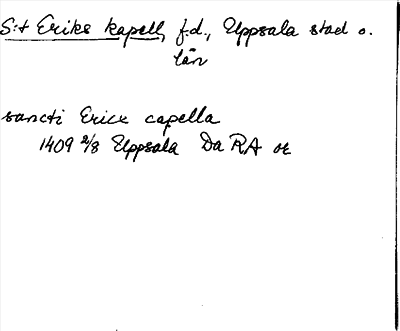 S:t Eriks kapell, f.d., Uppsala stad o.
län
sancti Erice capella
1409 2/8 Uppsala Da RA or